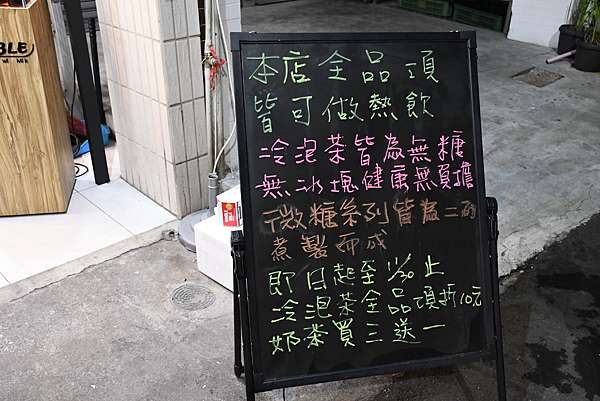 BLE
本店全品項
皆可做熱飲
冷泡茶皆為無糖
無冰塊健康無負擔
微糖系列皆為二砂
煮製而成
即日起至11/30止
冷泡茶全品項折10元
奶茶買三送一